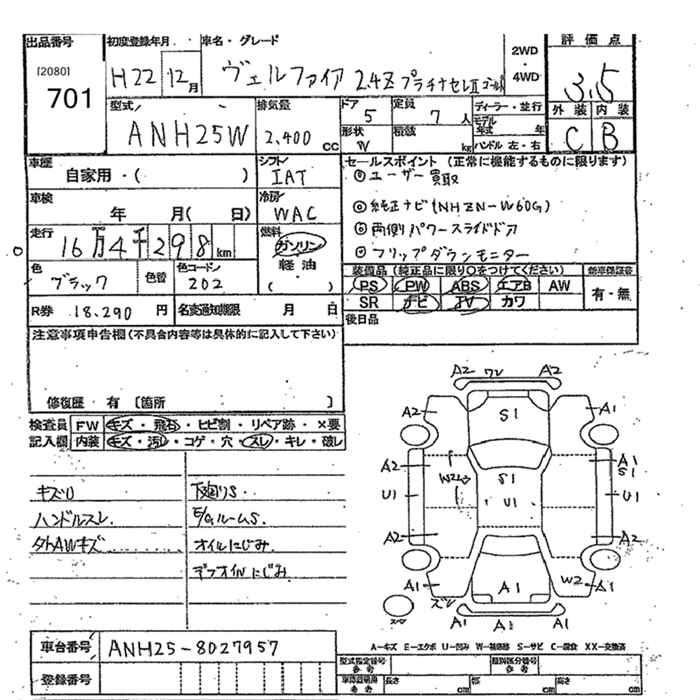 出品番号 初度登録年月 車名・グレード 2WD・4WD 評価点
[2080]
701
H22年12月 ヴェルファイア 2.4Z プラチナセレⅡ ゴールド
3.5
外装 内装
C B
型式 排気量 ドア 定員 ディーラー・並行
ANH25W 2,400cc 5 7人
モデル年式 年
形状 W 積載 kg ハンドル 左・右
車歴 シフト セールスポイント(正常に機能するものに限ります)
自家用・( ) IAT ◎ユーザー買取
車検 冷房 ◎純正ナビ(NHZN-W60G)
年 月( 日) WAC ◎両側パワースライドドア
走行 燃料 ◎フリップダウンモニター
16万4千298km ガソリン
軽油
( )
色 色替 色コード
ブラック 202
装備品(純正品に限り○をつけてください) 新車保証書
PS PW ABS エアB AW 有・無
SR ナビ TV カワ
R券 18,290円 名変通知期限 月 日 後日品
注意事項申告欄(不具合内容等は具体的に記入して下さい)
修復歴 有 [箇所 ]
検査員記入欄 FW キズ・飛石・ヒビ割・リペア跡・×要
内装 キズ・汚レ・コゲ・穴・スレ・キレ・破レ
キズU 下廻りS
ハンドルスレ E/Gルーム S
タトAWキズ オイルにじみ
デフオイルにじみ
A2 ワレ A2
A2 S1 A1
A2 W2 S1 A1
S1
U1 U1 U1
A2 A2
A1 A1 W2 A1
ズレ
A1 A1 A1
A-キズ E-エクボ U-凹み W-補修跡 S-サビ C-腐食 XX-交換済
車台番号 ANH25-8027957
登録番号
型式指定番号 参考 類別区分番号 参考
車検証記載 参考 長さ cm 幅 cm 高さ cm